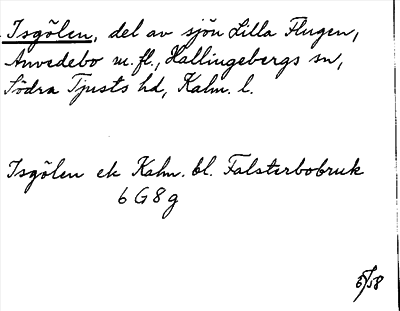 Isgölen, del av sjön Lilla Flugen,
Anvedebo m.fl., Hallingebergs sn,
Södra Tjusts hd, Kalm. l.
Isgölen ek Kalm. bl. Falsterbobruk
6 G 8 g